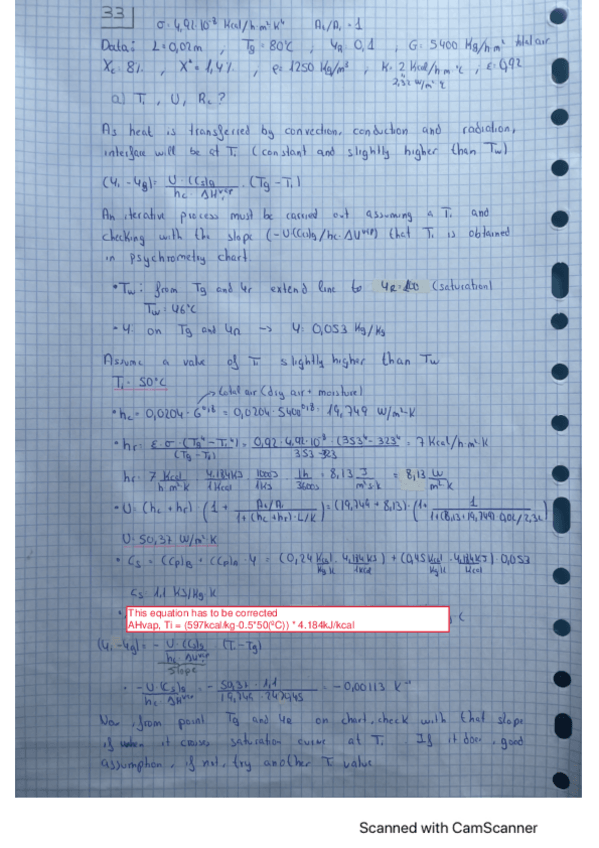 33
σ = 4,92 10⁻⁸ Kcal/h·m²·K⁴ Au/Ai = 1
Data: L = 0,02m , Tg = 80°C , 4R 0,1 , G = 5400 Kg/h m² total air
Xc = 8% , X* = 1,4% , ρ = 1250 Kg/m³ , K = 2 Kcal/h·m·°C , ε = 0,92
2,32 W/m·°C
a) Ti , U , Rc ?
As heat is transferred by convection, conduction and radiation,
interface will be at Ti (constant and slightly higher than Tw)
(4i - 4g) = U·(Cs)g / hc·ΔHvap · (Tg - Ti)
An iterative process must be carried out assuming a Ti and
checking with the slope (-U·(Cs)g/hc·ΔHvap) that Ti is obtained
in psychrometry chart.
• Tw: from Tg and 4r extend line to 4R=100 (saturation)
Tw = 46°C
• 4: on Tg and 4R -> 4: 0,053 Kg/Kg
Assume a value of Ti slightly higher than Tw
Ti = 50°C
total air (dry air + moisture)
• hc = 0,0204 · G^0,8 = 0,0204 · 5400^0,8 = 19,749 W/m²·K
• hr = ε·σ·(Tg⁴ - Ti⁴) / (Tg - Ti) = 0,92 · 4,92·10⁻⁸ (353⁴ - 323⁴) / 353-323 = 7 Kcal/h·m²·K
hr = 7 Kcal/h·m²·K · 4,184KJ/1Kcal · 1000J/1KJ · 1h/3600s = 8,13 J/m²·s·K = 8,13 W/m²·K
• U = (hc + hr) (1 + Au/Ai / 1+(hc+hr)·L/K) = (19,749 + 8,13) · (1 + 1 / 1+(8,13+19,749) 0,02/2,32)
U = 50,37 W/m²·K
• Cs = (Cp)B + (Cp)A · 4 = (0,24 Kcal/Kg·K · 4,184KJ/1Kcal) + (0,45 Kcal/Kg·K · 4,184KJ/Kcal) · 0,053
Cs = 1,1 KJ/Kg·K
This equation has to be corrected
AHvap, Ti = (597kcal/kg-0.5*50(ºC)) * 4.184kJ/kcal
(4i - 4g) = - U·(Cs)g / hc·ΔHvap (Ti - Tg)
slope
• -U·(Cs)g / hc·ΔHvap = - 50,37 · 1,1 / 19,749 · = -0,00113 K⁻¹
Now, from point Tg and 4R on chart, check with that slope
if when it crosses saturation curve at Ti. If it does, good
assumption, if not, try another Ti value
Scanned with CamScanner